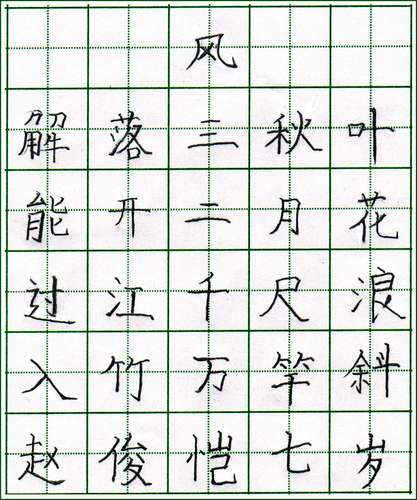 风
解落三秋叶
能开二月花
过江千尺浪
入竹万竿斜
赵俊恺七岁